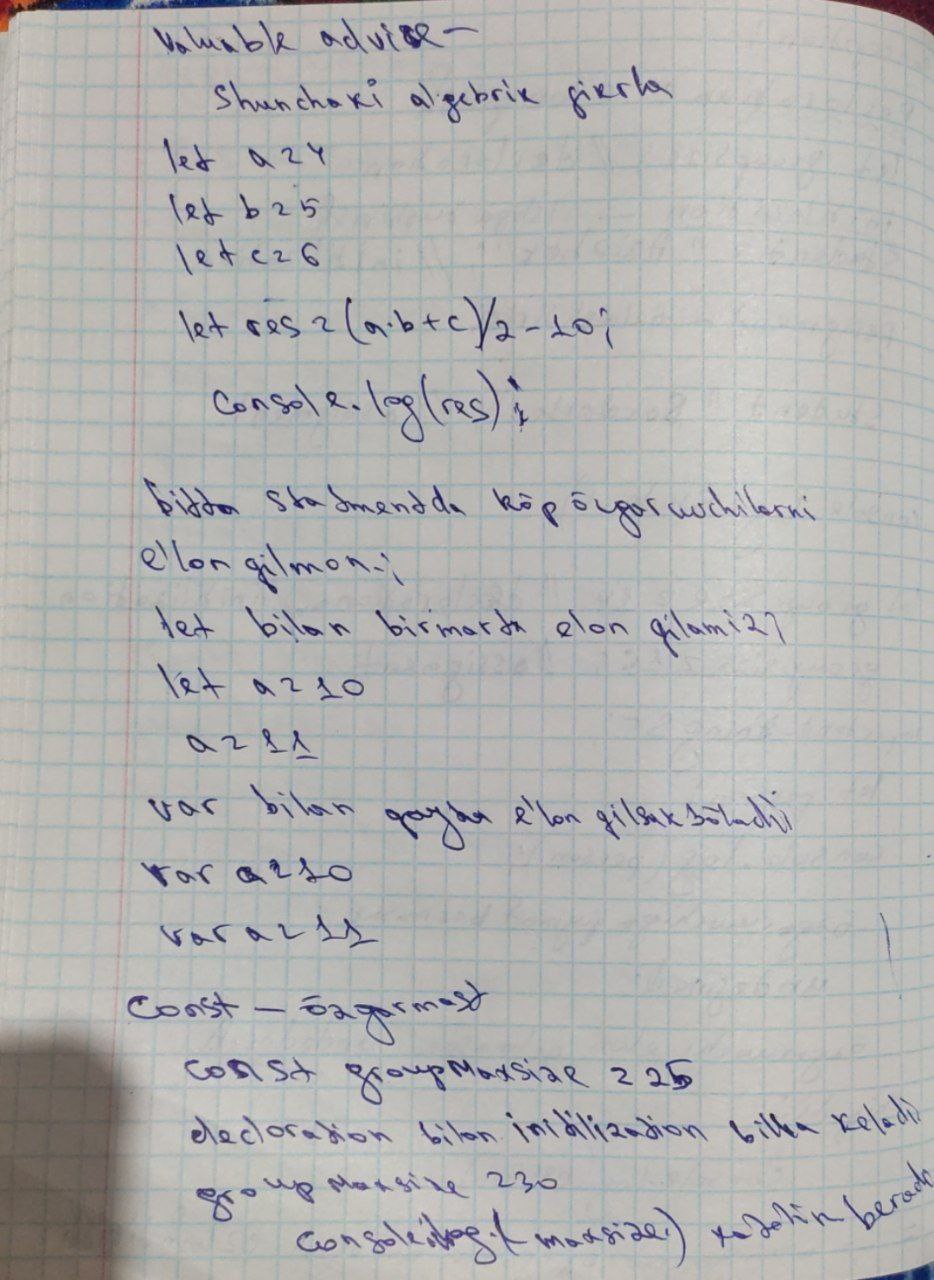 valuable advice —
Shunchaki algebrik fikrla
let a = 4
let b = 5
let c = 6
let res = (a·b+c)/2 - 10;
console.log(res);
bitta statmentda kōp ōzgaruvchilarni
e'lon qilman-;
let bilan birmarta elon qilamiz;
let a = 10
a = 11
var bilan qayta e'lon qilsak bōladi
var a = 10
var a = 11
Const — ōzgarmast
const groupMaxsize = 25
decloration bilan initilization bilka keladi
groupMaxsize = 30
console.log(maxsize.) xatolik beradi